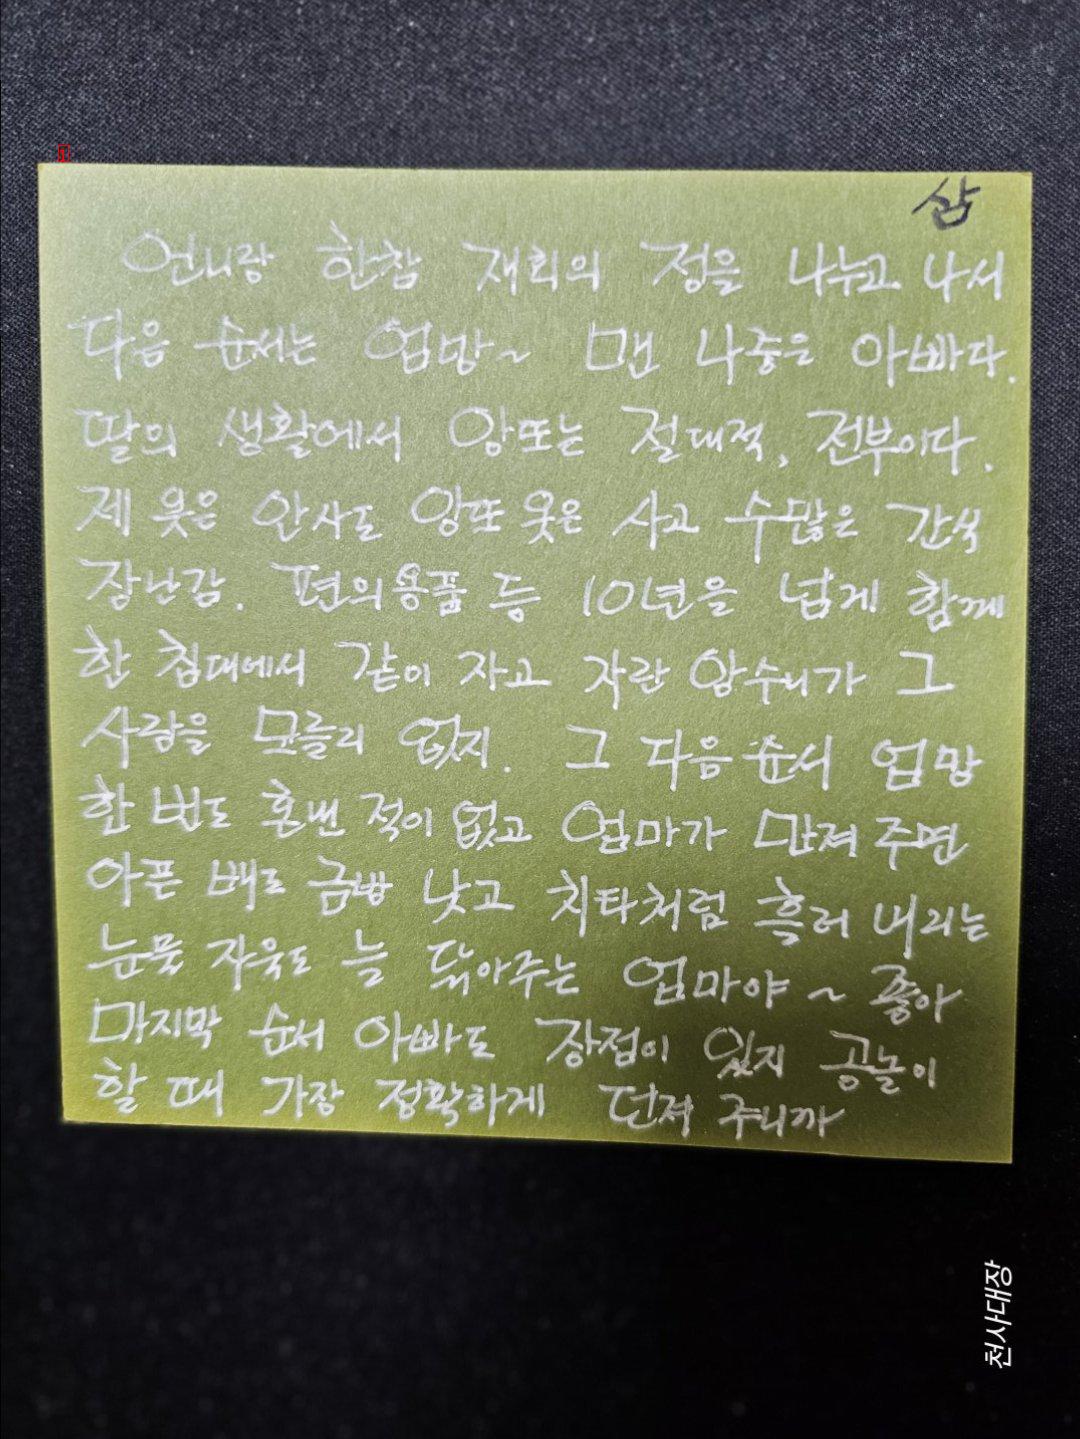 삼
언니랑 한참 재회의 정을 나누고 나서
다음 순서는 엄망~ 맨 나중은 아빠다.
딸의 생활에서 앙또는 절대적, 전부이다.
제 옷은 안사도 앙또 옷은 사고 수많은 간식
장난감. 편의용품 등 10년을 넘게 함께
한 침대에서 같이 자고 자란 앙수니가 그
사람을 모를리 없지. 그 다음 순서 엄망
한 번도 혼낸 적이 없고 엄마가 만져 주면
아픈 배도 금방 낫고 치타처럼 흘러 내리는
눈물 자욱도 늘 닦아주는 엄마야~ 좋아
마지막 순서 아빠도 장점이 있지 공놀이
할 때 가장 정확하게 던져 주니까
천사대장